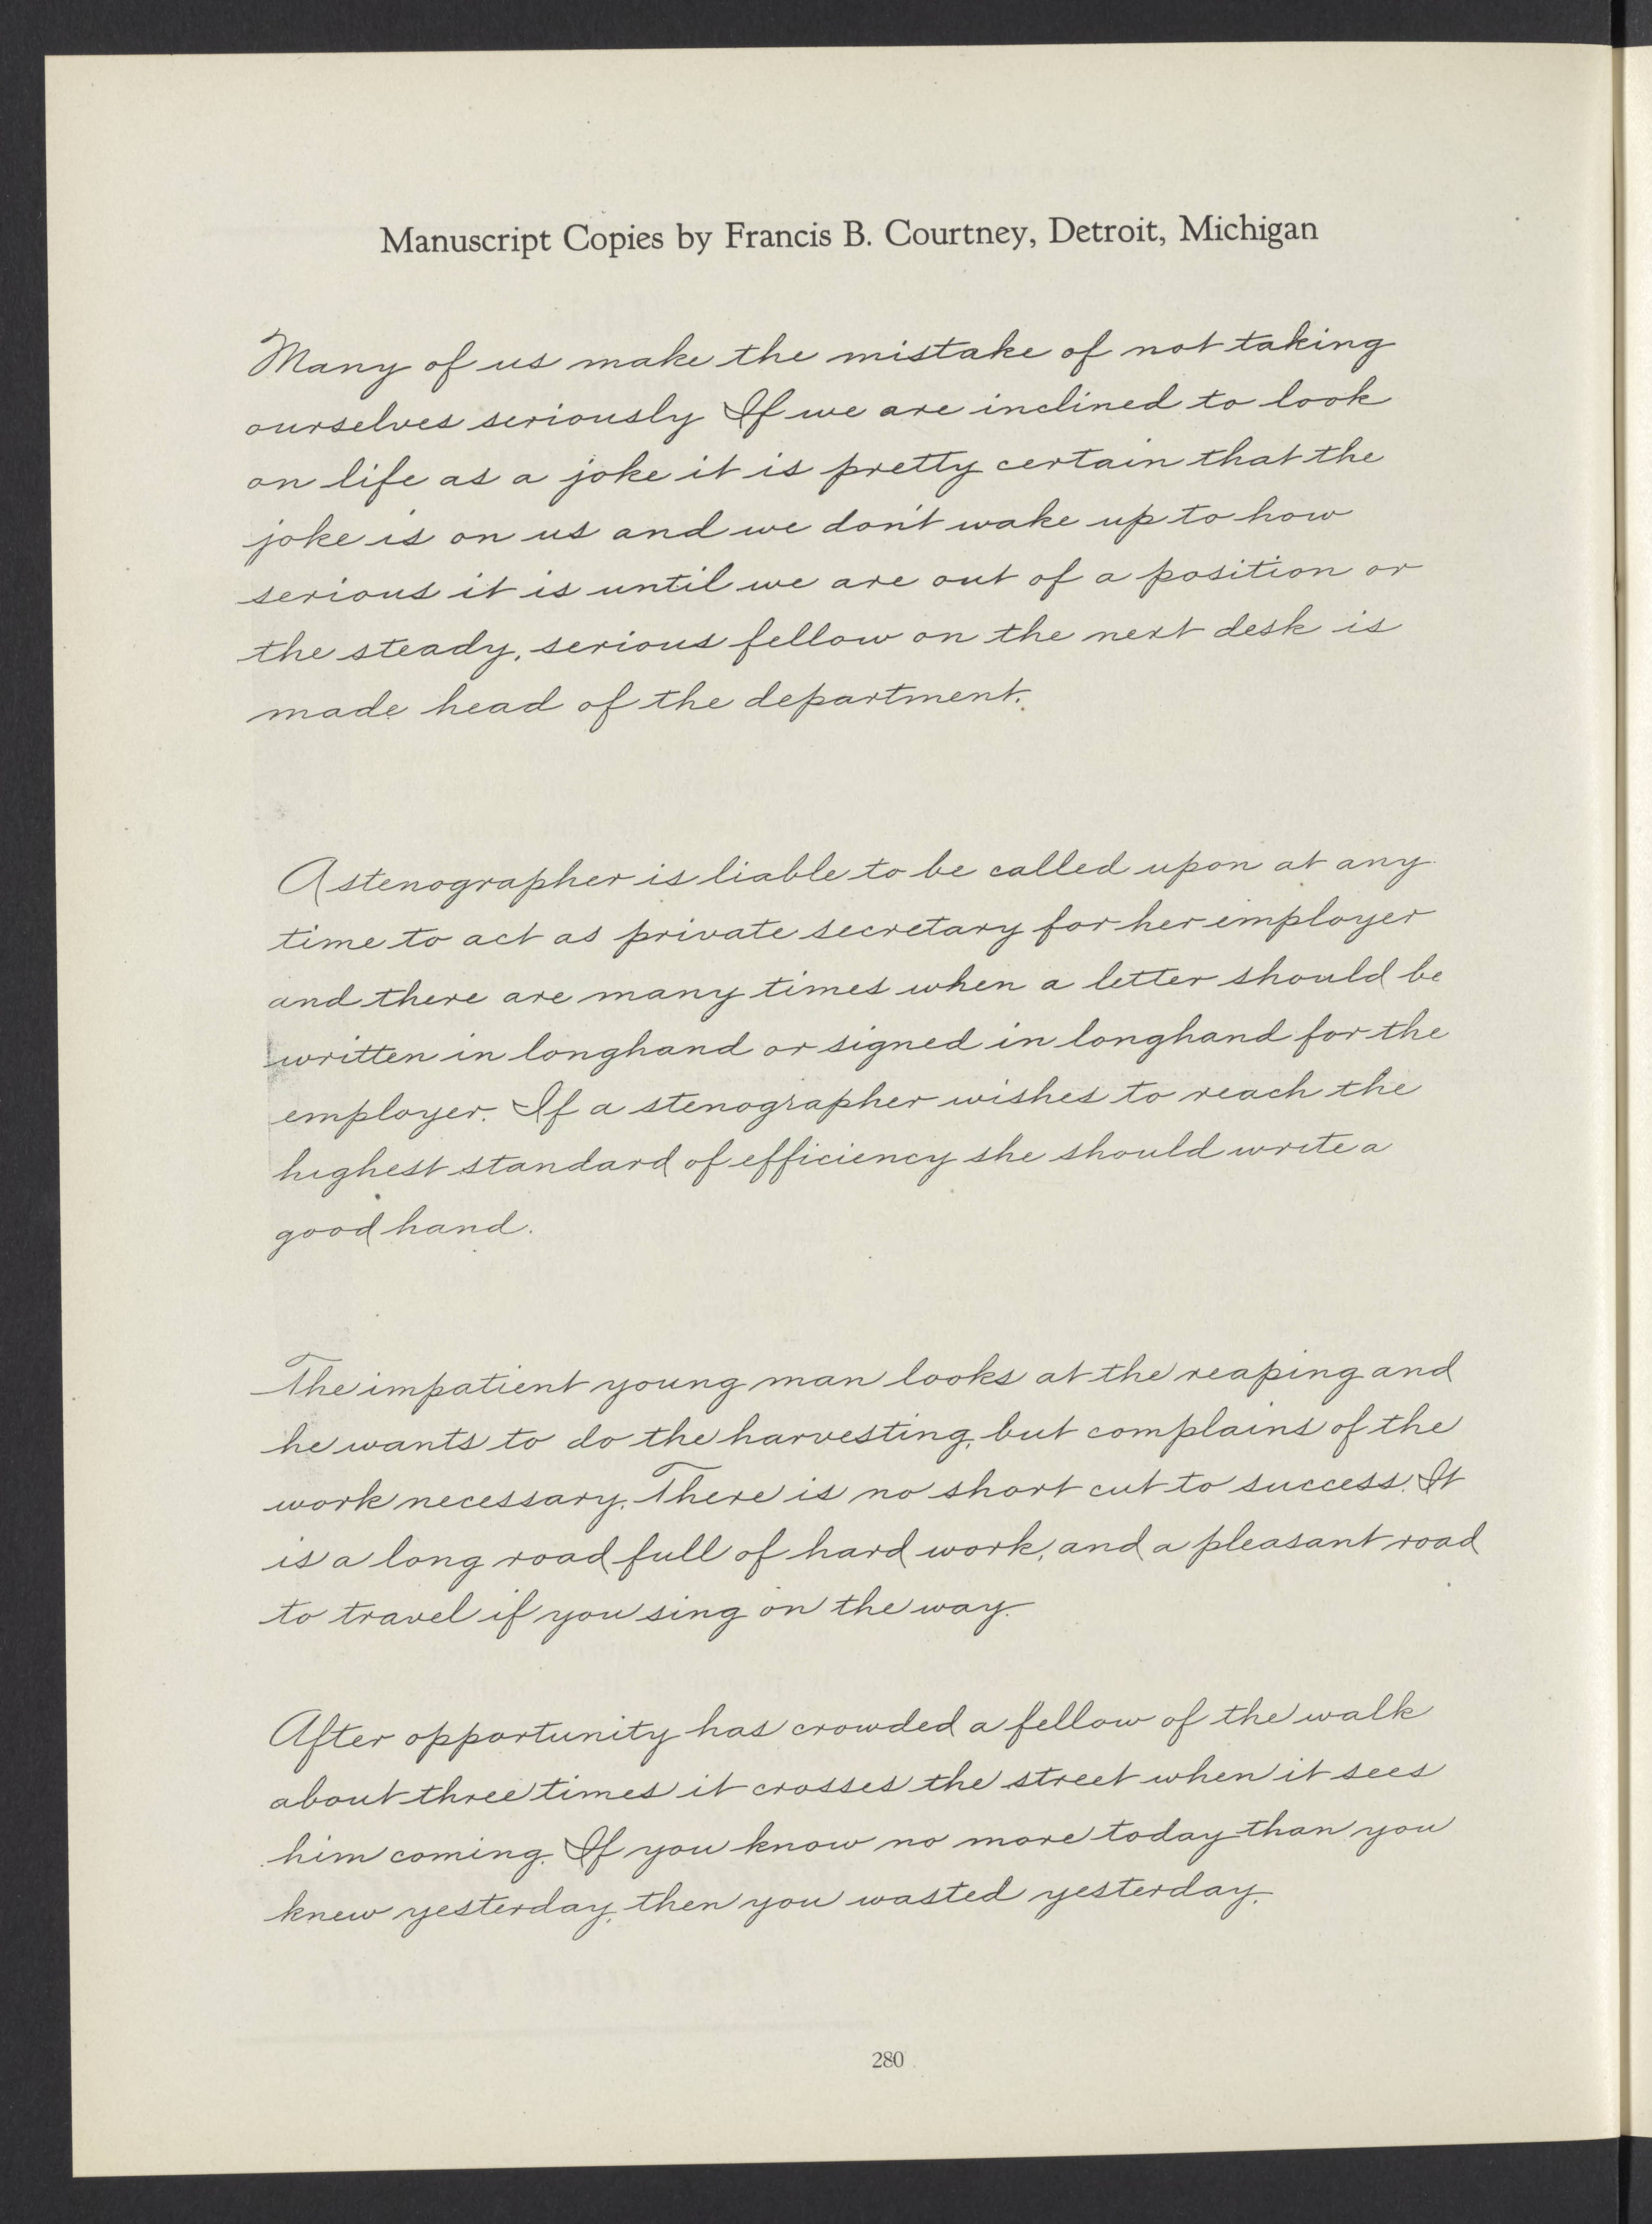 Manuscript Copies by Francis B. Courtney, Detroit, Michigan
Many of us make the mistake of not taking
ourselves seriously If we are inclined to look
on life as a joke it is pretty certain that the
joke is on us and we don't wake up to how
serious it is until we are out of a position or
the steady, serious fellow on the next desk is
made head of the department.
A stenographer is liable to be called upon at any
time to act as private secretary for her employer
and there are many times when a letter should be
written in longhand or signed in longhand for the
employer. If a stenographer wishes to reach the
highest standard of efficiency she should write a
good hand.
The impatient young man looks at the reaping and
he wants to do the harvesting, but complains of the
work necessary. There is no short cut to success. It
is a long road full of hard work, and a pleasant road
to travel if you sing on the way.
After opportunity has crowded a fellow of the walk
about three times it crosses the street when it sees
him coming. If you know no more today than you
knew yesterday, then you wasted yesterday.
280